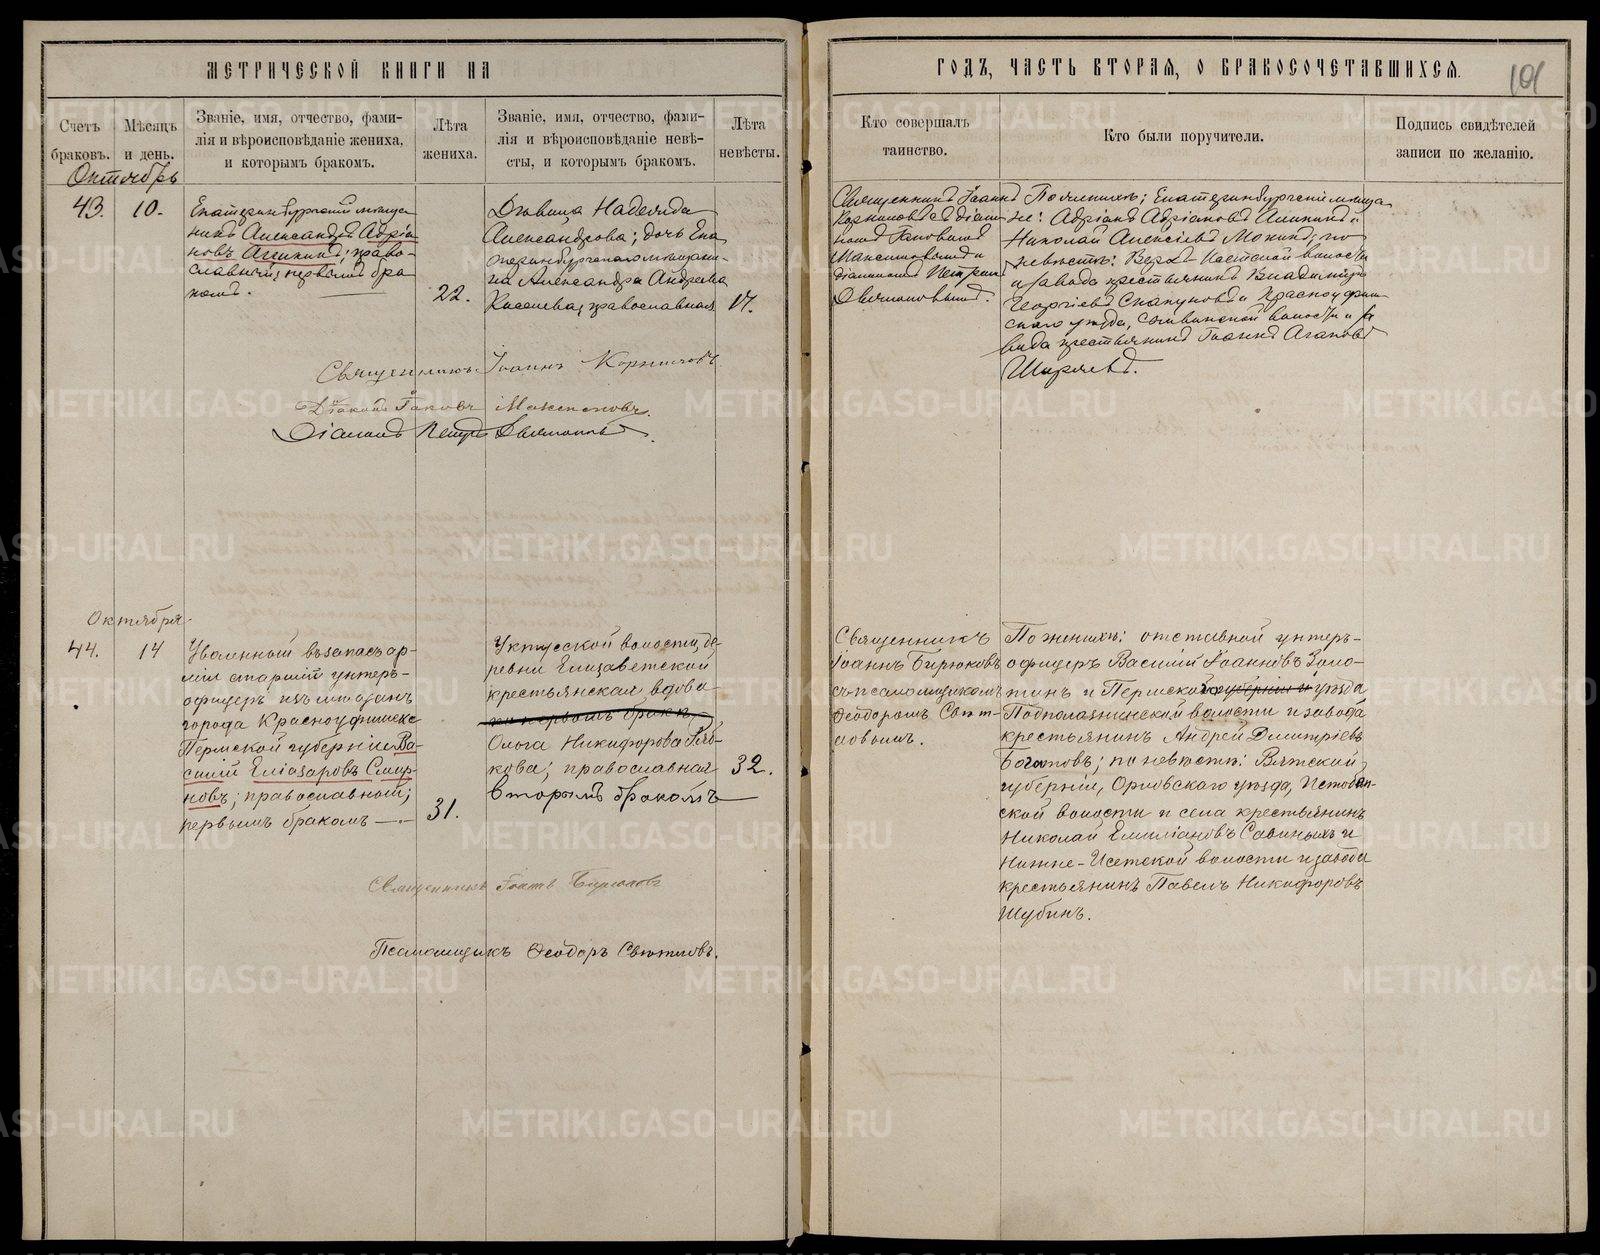 МЕТРИЧЕСКОЙ КНИГИ НА
ГОДЪ, ЧАСТЬ ВТОРАЯ, О БРАКОСОЧЕТАВШИХСЯ.
101
Счетъ
браковъ.
Мѣсяцъ
и день.
Званіе, имя, отчество, фами-
лія и вѣроисповѣданіе жениха,
и которымъ бракомъ.
Лѣта
жениха.
Званіе, имя, отчество, фами-
лія и вѣроисповѣданіе невѣ-
сты, и которымъ бракомъ.
Лѣта
невѣсты.
Кто совершалъ
таинство.
Кто были поручители.
Подпись свидѣтелей
записи по желанію.
Октябрь
43.
10.
Екатеринбургскій мѣща
нинъ Александръ Адріа
новъ Аликинъ; право-
славный; первымъ бра
комъ.
22.
Дѣвица Надежда
Александрова; дочь Ека
теринбургскаго мѣщани-
на Александра Андреева
православная
17.
Священникъ Іоаннъ
Корниловъ съ діако
номъ Іаковомъ
Максимовымъ и
діакономъ Петромъ
По женихѣ: Екатеринбургскіе мѣща
не: Адріанъ Адріановъ Аликинъ и
Николай Алексѣевъ Мокинъ; по
невѣстѣ: Верхъ-Исетской волости
и завода крестьянинъ Владиміръ
Георгіевъ и Красноуфим
скаго уѣзда, волости и за
вода крестьянинъ Іоаннъ Агаповъ
Ширяевъ.
Священникъ Іоаннъ Корниловъ.
Діаконъ Іаковъ Максимовъ.
Діаконъ Петръ
Октября
44.
14
Уволенный въ запасъ ар-
міи старшій унтеръ-
офицеръ изъ мѣщанъ
города Красноуфимска
Пермской губерніи Ва-
силій Еліазаровъ Смир-
новъ; православный;
первымъ бракомъ
31.
Уктусской волости, де-
ревни Елизаветской
крестьянская вдова
Ольга Никифорова
кова; православная
вторымъ бракомъ
32.
Священникъ
Іоаннъ Бирюковъ
съ псаломщикомъ
Ѳеодоромъ Свѣт-
ловымъ.
По женихѣ: отставной унтеръ-
офицеръ Василій Іоанновъ Золо-
тинъ и Пермской губерніи и уѣзда
волости и завода
крестьянинъ Андрей Дмитріевъ
по невѣстѣ: Вятской
губерніи, Орловскаго уѣзда, Истобен-
ской волости и села крестьянинъ
Николай Емиліановъ Савиныхъ и
Нижне-Исетской волости и завода
крестьянинъ Павелъ Никифоровъ
Шубинъ.
Священникъ Іоаннъ Бирюковъ
Псаломщикъ Ѳеодоръ Свѣтловъ.
METRIKI.GASO-URAL.RU